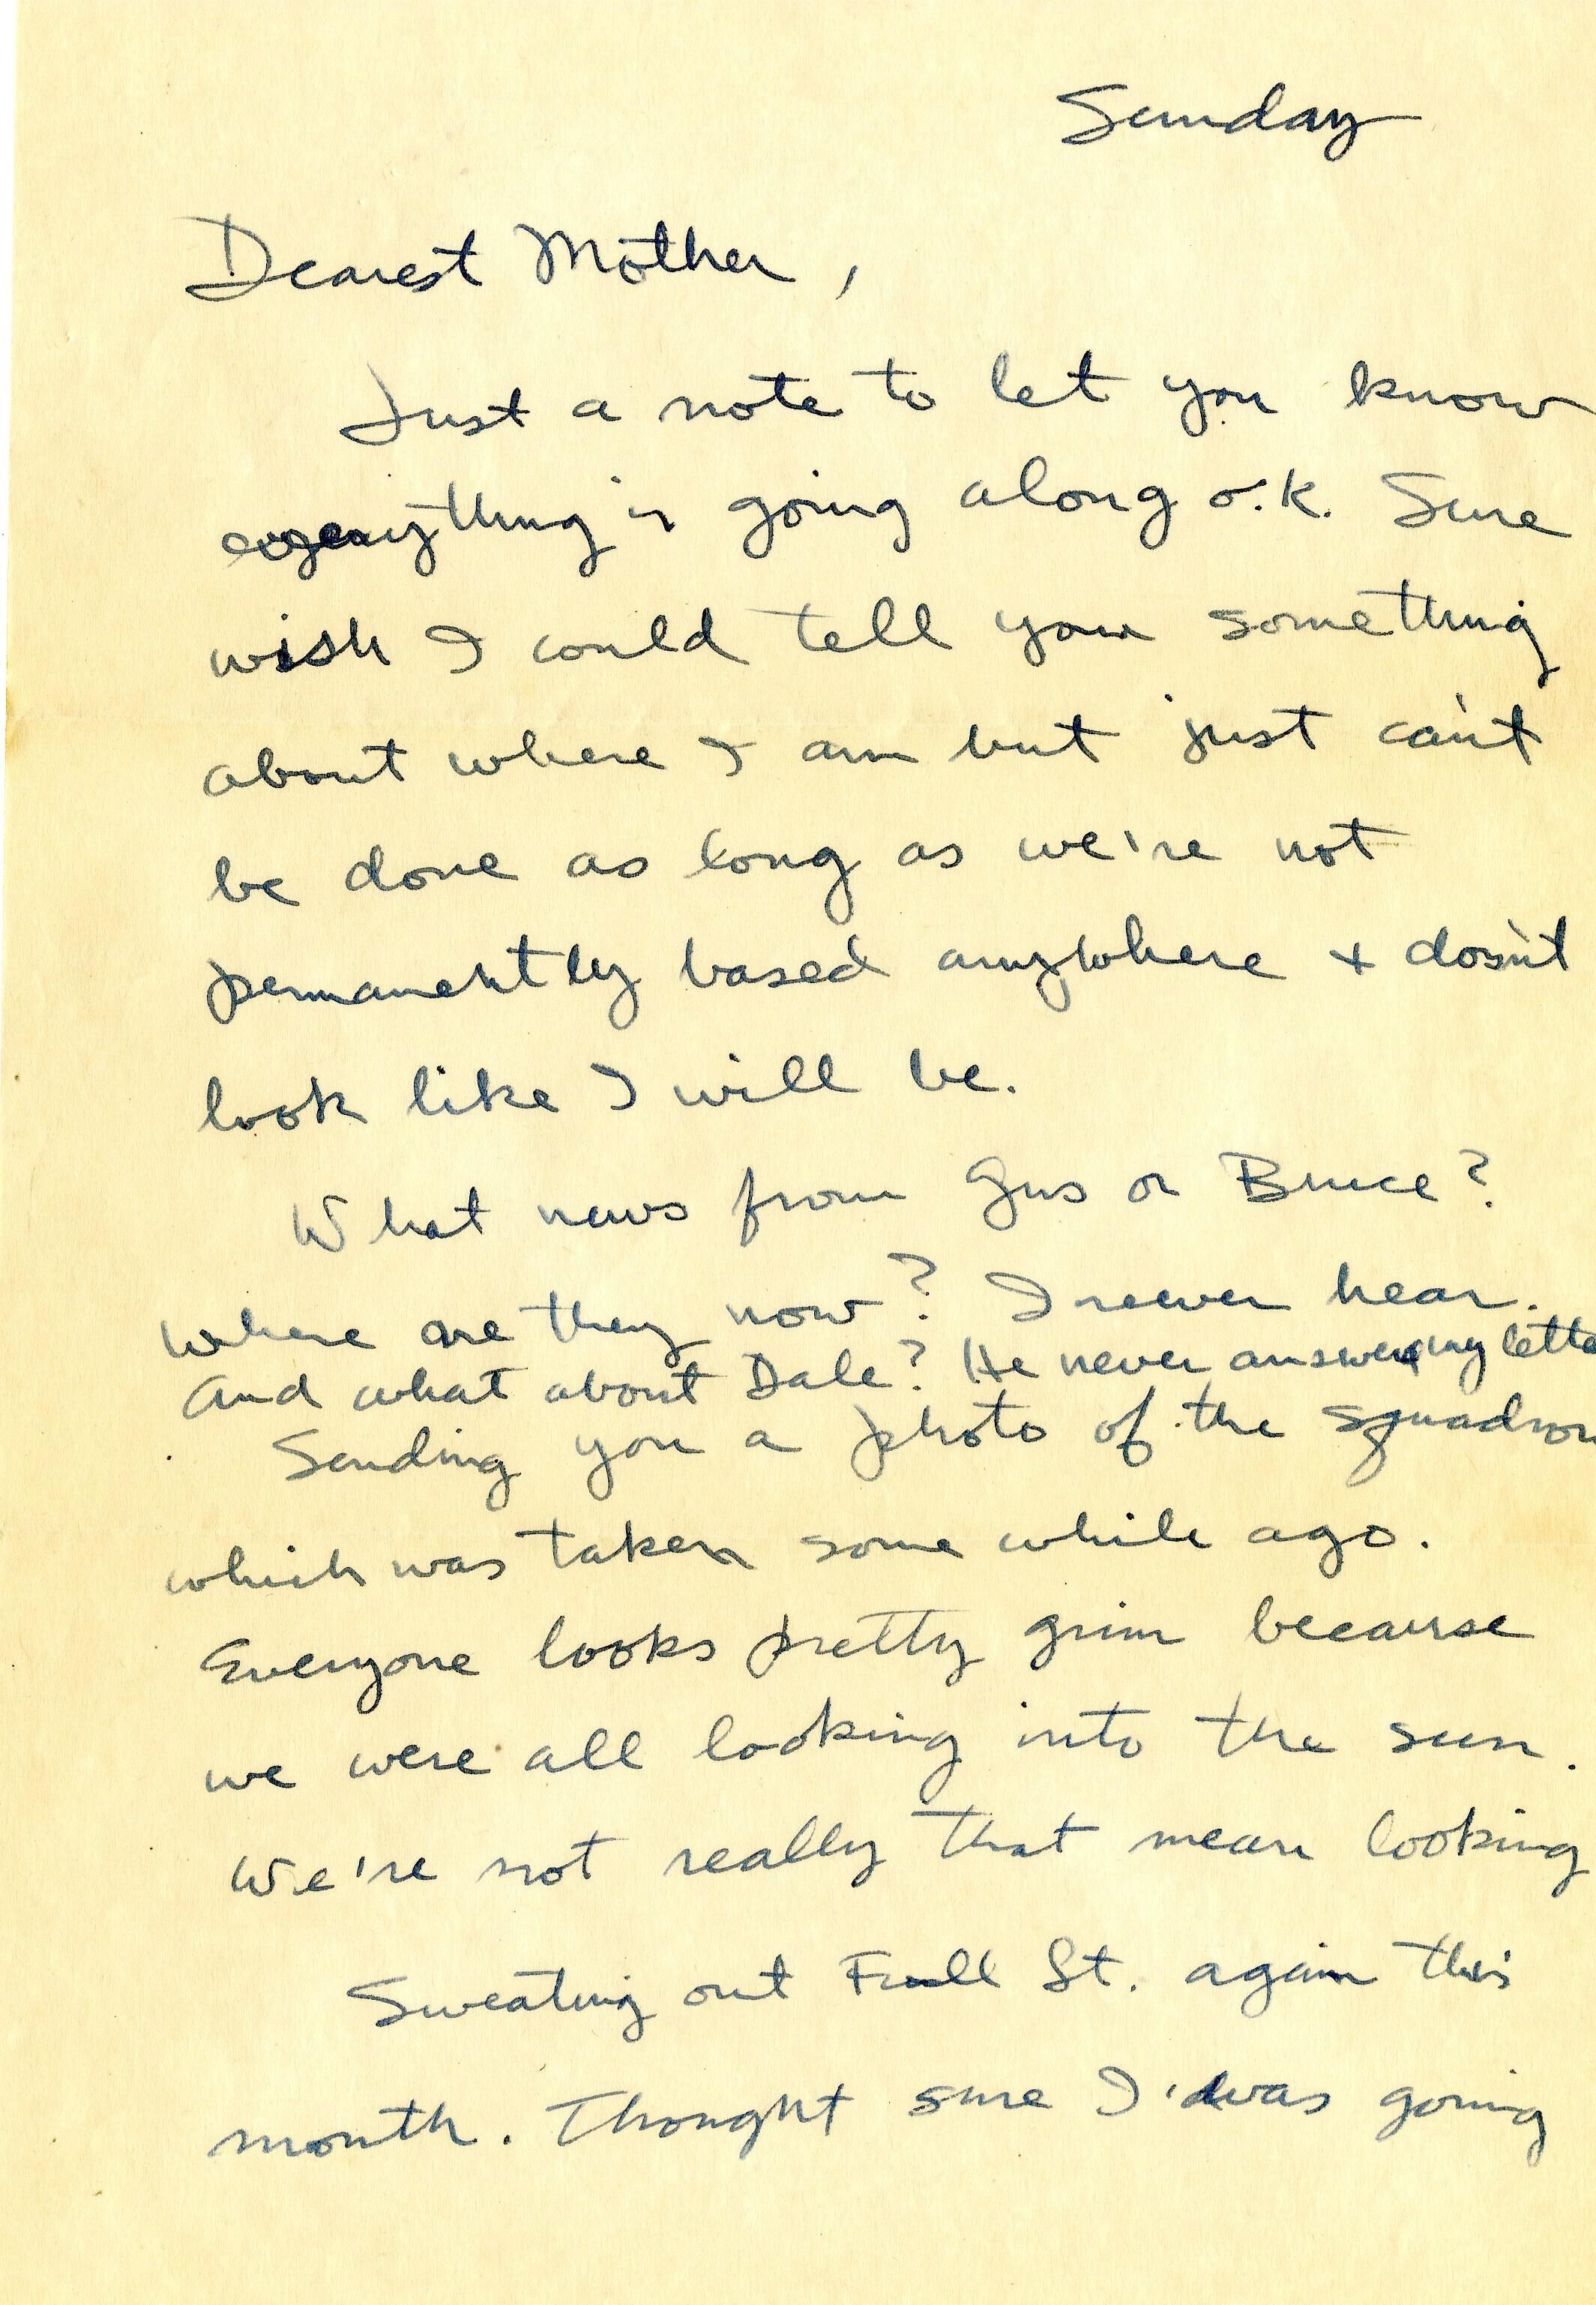 Sunday
Dearest Mother,
Just a note to let you know
everything is going along o.k. Sure
wish I could tell you something
about where I am but just can't
be done as long as we're not
permanently based anywhere + dosn't
look like I will be.
What news from Gus or Bruce?
Where are they now? I never hear.
And what about Dale? He never answers my lette
Sending you a photo of the squadron
which was taken some while ago.
Everyone looks pretty grim because
we were all looking into the sun.
We're not really that mean looking
Sweating out Full St. again this
month. Thought sure I was going